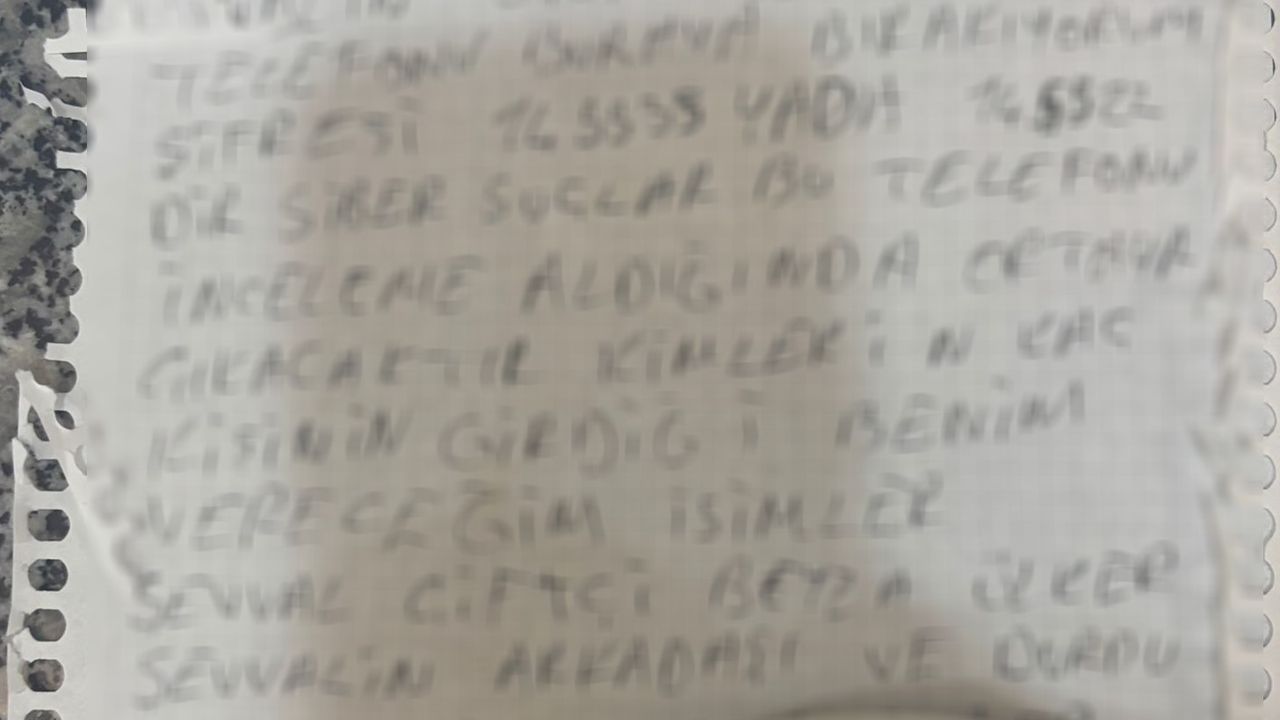 TELEFONU BURAYA BIRAKIYORUM
ŞİFRESİ YADA
DİR SİBER SUÇLAR BU TELEFONU
İNCELEME ALDIĞINDA ORTAYA
ÇIKACAKTIR KİMLERİN KAÇ
KİŞİNİN GİRDİĞİ BENİM
VERECEĞİM İSİMLER
ŞEVVAL ÇİFTÇİ BEYZA İLKER
ŞEVVALİN ARKADAŞI VE DURDU